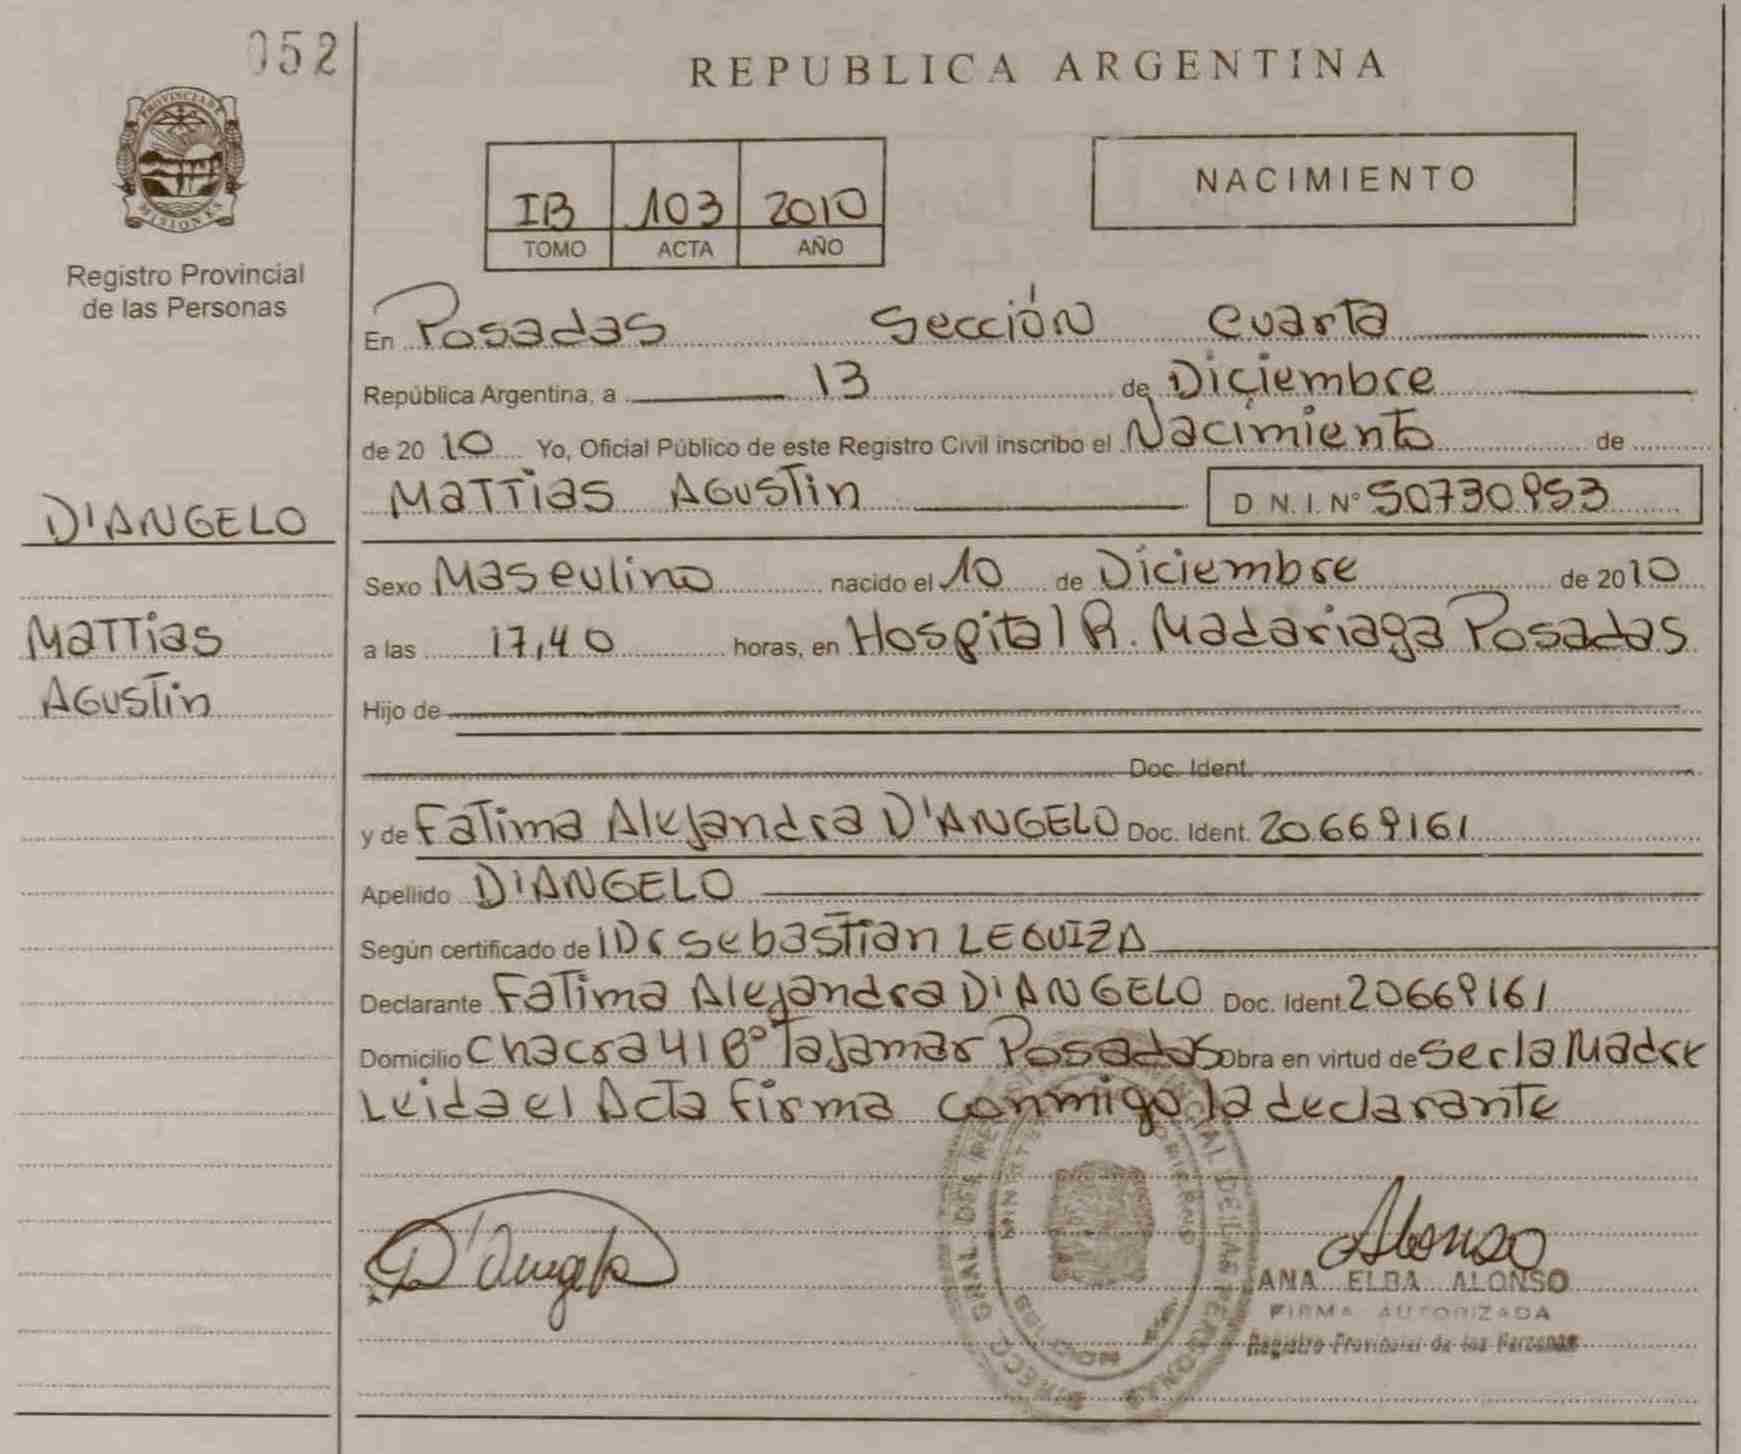 052
REPUBLICA ARGENTINA
PROVINCIA DE
MISIONES
Registro Provincial
de las Personas
IB 103 2010
TOMO ACTA AÑO
NACIMIENTO
En Posadas Sección Cuarta
República Argentina, a 13 de Diciembre
de 20 10 Yo, Oficial Público de este Registro Civil inscribo el Nacimiento de
D'ANGELO
Mattias Agustin D.N.I. Nº 50730953
Sexo Masculino nacido el 10 de Diciembre de 2010
Mattias
Agustin
a las 17,40 horas, en Hospital R. Madariaga Posadas
Hijo de
Doc. Ident.
y de Fatima Alejandra D'ANGELO Doc. Ident. 20669161
Apellido D'ANGELO
Según certificado de Dr Sebastian LEGUIZA
Declarante Fatima Alejandra D'ANGELO Doc. Ident. 20669161
Domicilio Chacra 41 Bº Tajamar Posadas Obra en virtud de ser la Madre
Leida el Acta firma conmigo la declarante
D'Angelo
Alonso
ANA ELBA ALONSO
FIRMA AUTORIZADA
Registro Provincial de las Personas